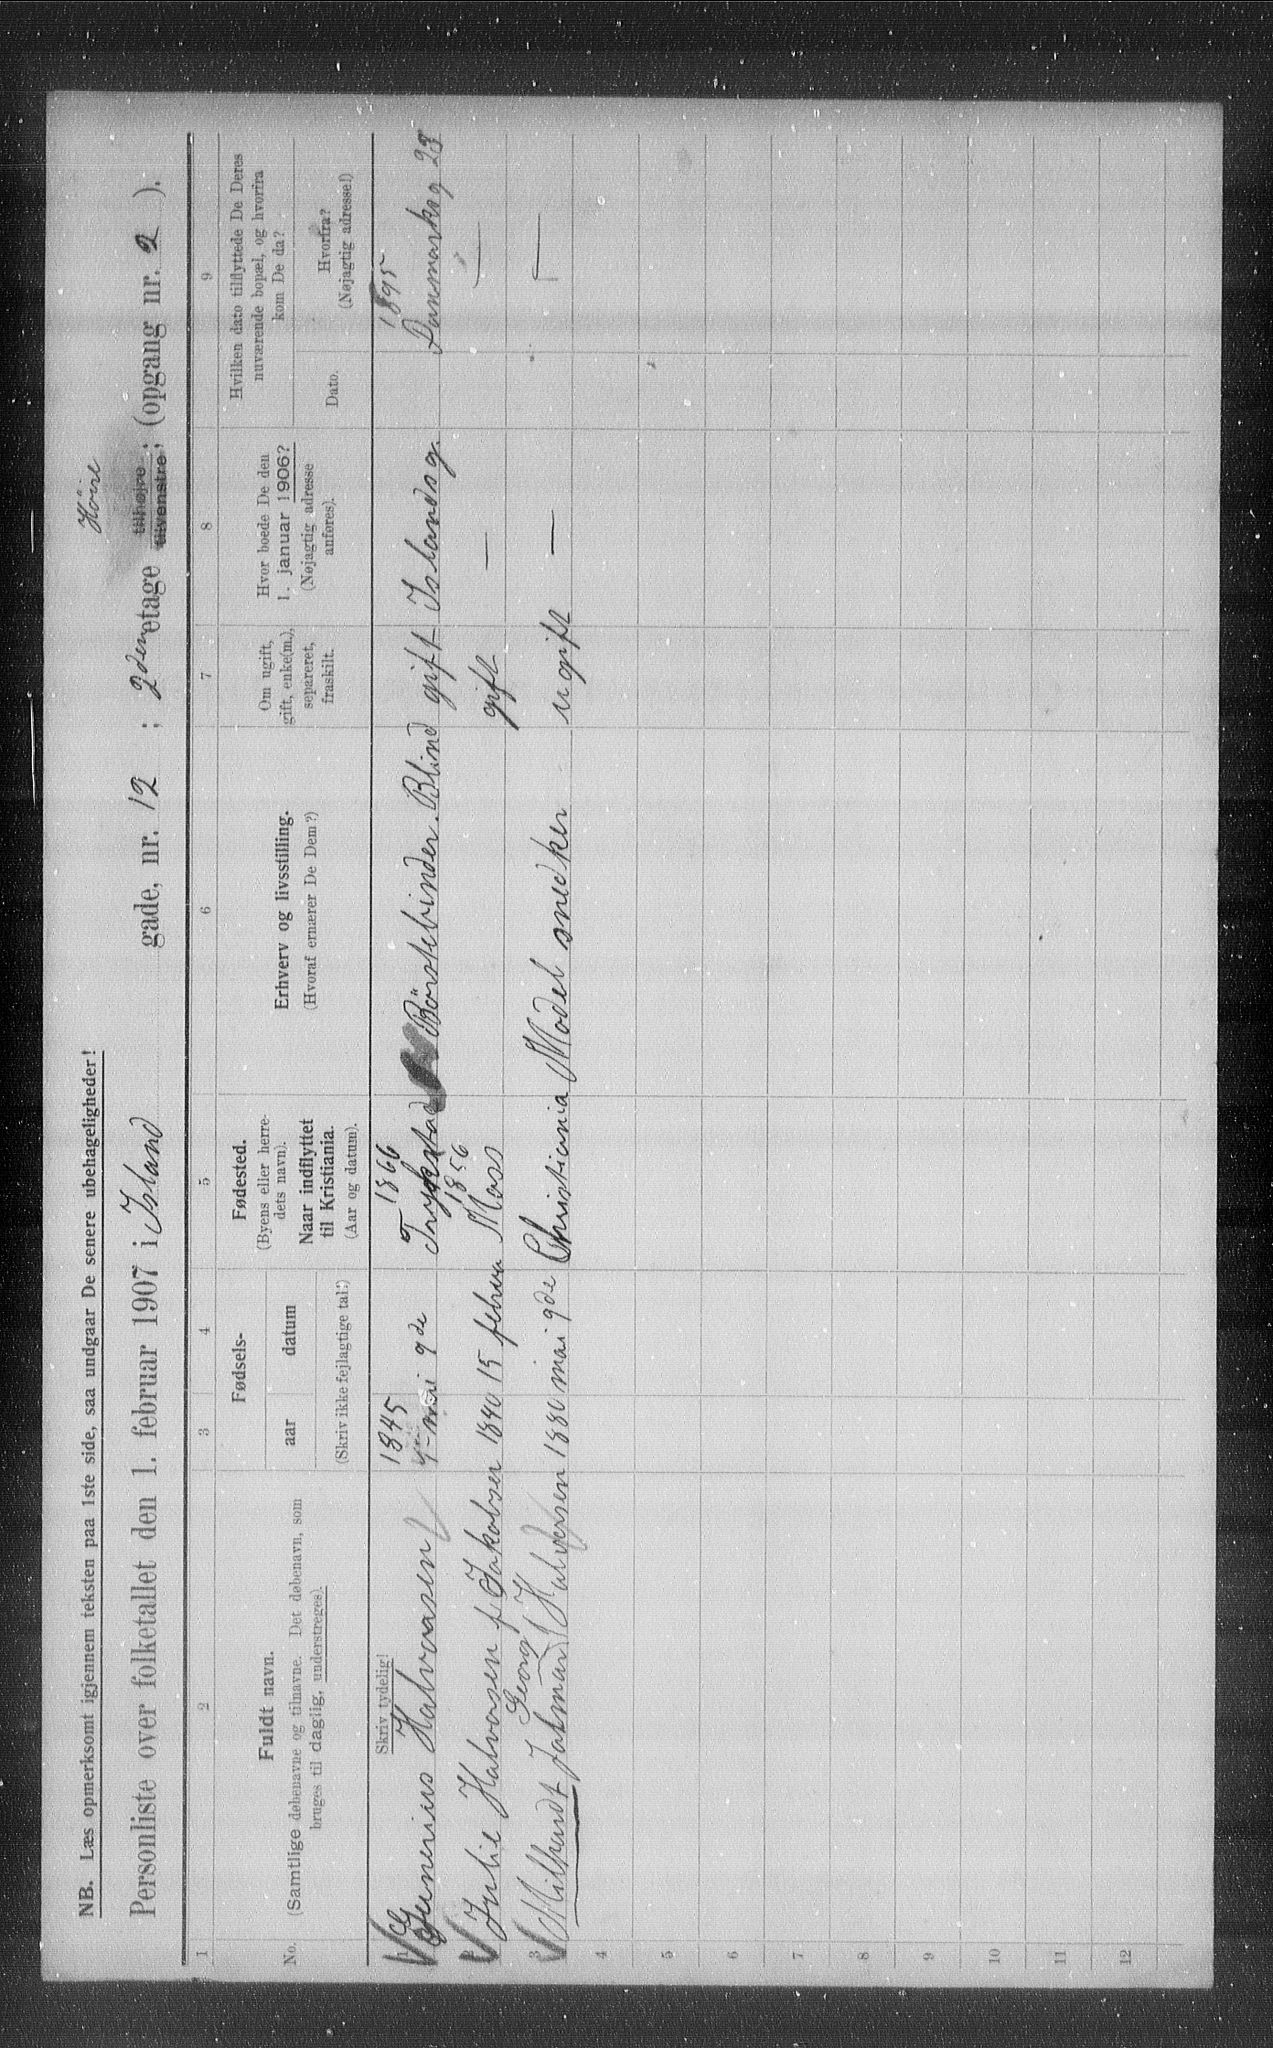 NB. Læs opmerksomt igjennem teksten paa 1ste side, saa undgaar De senere ubehageligheder!
Høire
Personliste over folketallet den 1. februar 1907 i Island gade, nr. 12 ; 2den etage tilhøjre ; (opgang nr. 2 ).
tilvenstre
1 2 3 4 5 6 7 8 9
No.
Fuldt navn.
(Samtlige døbenavne og tilnavne. Det døbenavn, som
bruges til daglig, understreges).
Fødsels-
aar datum
(Skriv ikke fejlagtige tal!)
Fødested.
(Byens eller herre-
dets navn).
Naar indflyttet
til Kristiania.
(Aar og datum).
Erhverv og livsstilling.
(Hvoraf ernærer De Dem?)
Om ugift,
gift, enke(m.),
separeret,
fraskilt.
Hvor boede De den
1. januar 1906?
(Nøjagtig adresse
anføres).
Hvilken dato tilflyttede De Deres
nuværende bopæl, og hvorfra
kom De da?
Dato.
Hvorfra?
(Nøjagtig adresse!)
Skriv tydelig!
1845 1866 1895
1 Gunerius Halvorsen mai 9de Trykstad Børstebinder. Blind gift Islandsg. Danmarksg 28
1856
2 Julie Halvorsen f. Jakobsen 1840 15 februa Moss gift — —
Georg
3 Milhardt Jalmar Halvorsen 1880 mai 9de Christiania Model snedker ugift — —
4
5
6
7
8
9
10
11
12